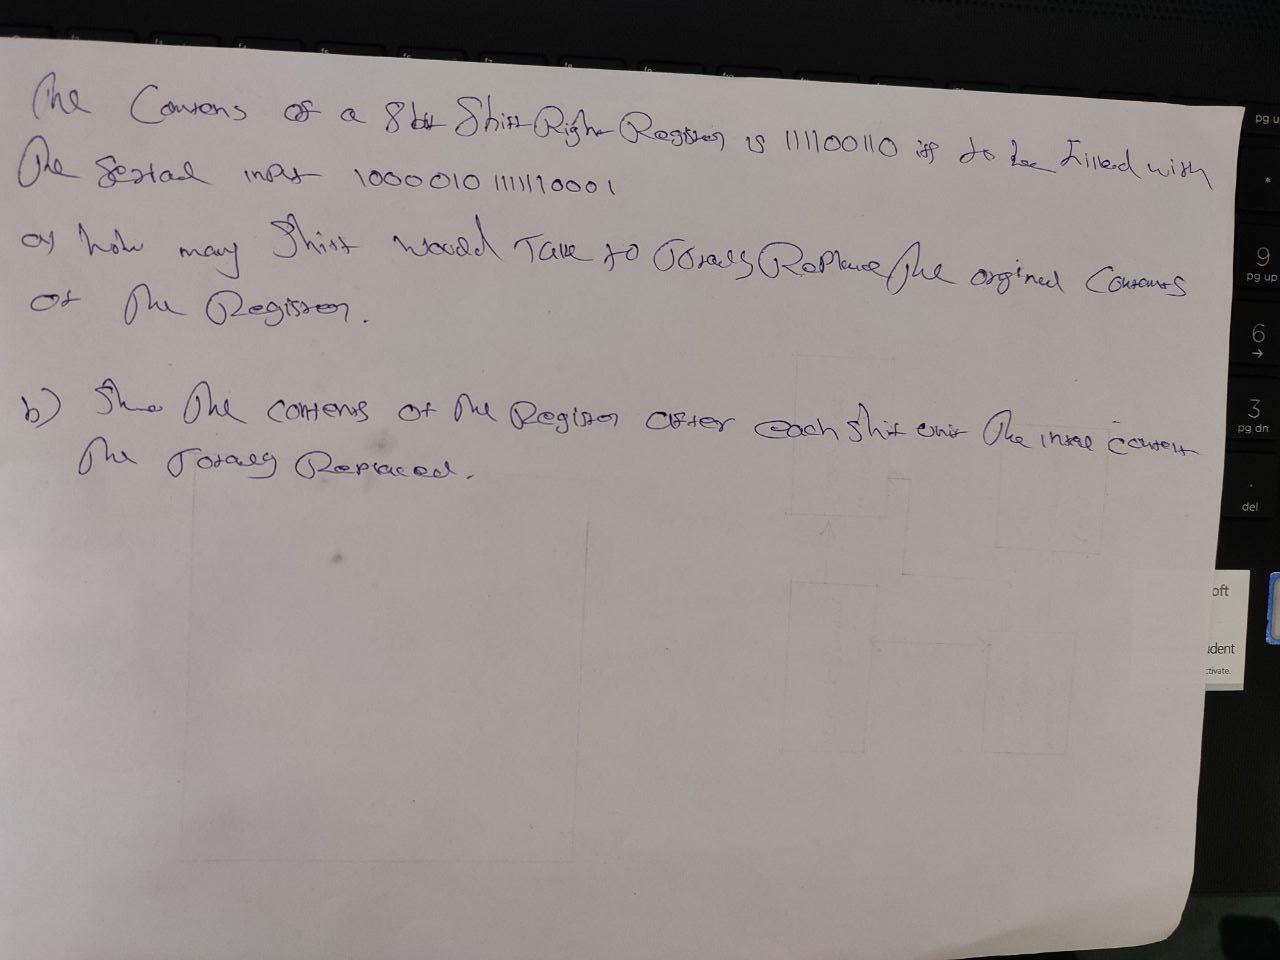 The Contens of a 8 bit Shift Right Register is 11100110 if to be filled with
The Serial input 1000010 1111110001
a) how many Shift would Take to Totally Replace The orginal Contents
of The Register.
b) Show The contens of The Register after each shift until The content
The Totally Replaced.
pg u
9
pg up
6
→
3
pg dn
.
del
oft
udent
ctivate.